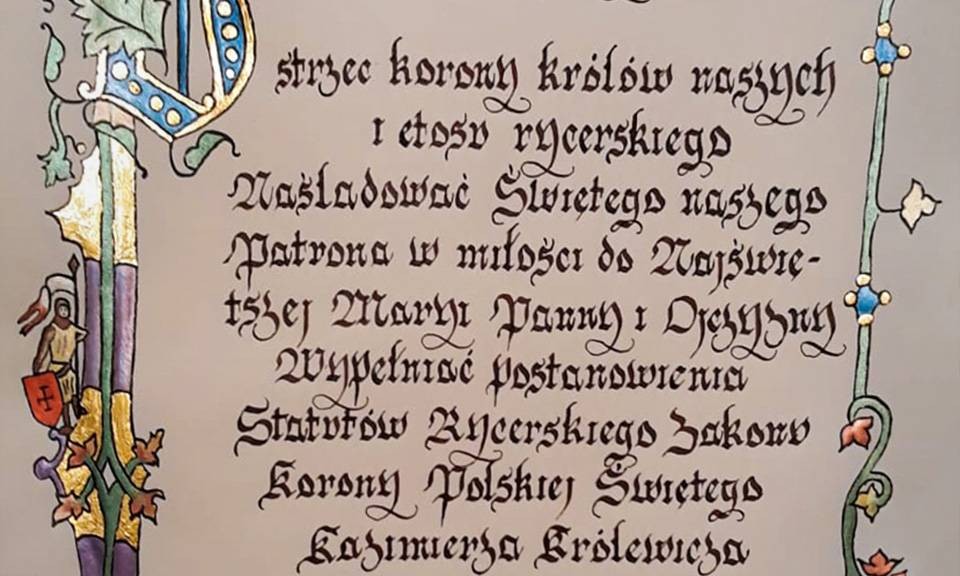 strzec korony królów naszych
i etosu rycerskiego
Naśladować Świętego naszego
Patrona w miłości do Najświę-
tszej Maryi Panny i Ojczyzny
Wypełniać postanowienia
Statutów Rycerskiego Zakonu
Korony Polskiej Świętego
Kazimierza Królewicza